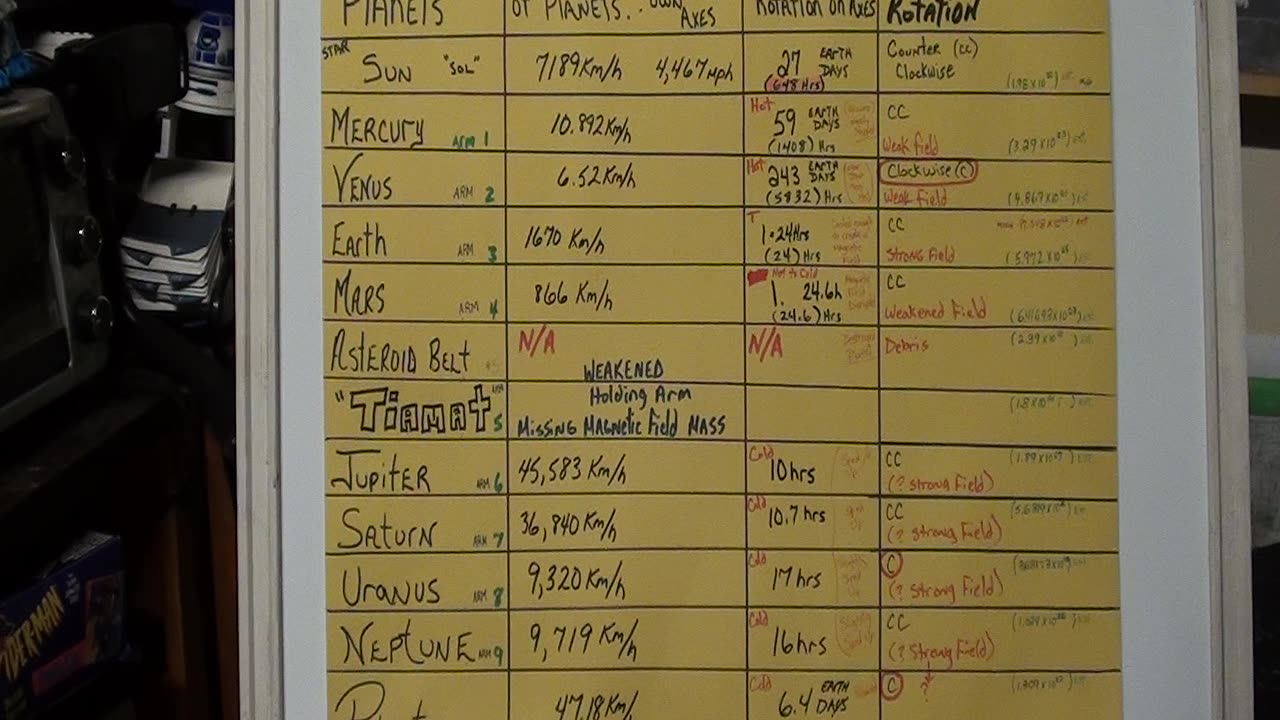 PLANETS
OF PLANETS.. OWN AXES
ROTATION ON AXES
ROTATION
STAR
SUN "SOL"
7189 Km/h 4,467 mph
27 EARTH DAYS
(648 Hrs)
Counter (CC)
Clockwise
MERCURY ARM 1
10.892 Km/h
Hot
59 EARTH DAYS
(1408) Hrs
CC
Weak field
(3.29 x 10
VENUS ARM 2
6.52 Km/h
Hot
243 EARTH DAYS
(5832) Hrs
Clockwise (C)
Weak Field
(4.867 x 10
Earth ARM 3
1670 Km/h
T
1.24Hrs
(24) Hrs
CC
Strong Field
(5.972 x 10
MARS ARM 4
866 Km/h
Hot to Cold
1. 24.6h
(24.6) Hrs
CC
Weakened Field
ASTEROID BELT
N/A
N/A
Debris
(2.39 x 10
WEAKENED
"TIAMAT ARM 5
Holding Arm
Missing Magnetic Field MASS
JUPITER ARM 6
45,583 Km/h
Cold
10hrs
CC
(? strong Field)
SATURN ARM 7
36,840 Km/h
Cold
10.7 hrs
CC
(? strong Field)
URANUS ARM 8
9,320 Km/h
Cold
17 hrs
C
(? strong Field)
NEPTUNE ARM 9
9,719 Km/h
Cold
16hrs
CC
(? Strong Field)
47.18 Km/h
Cold
6.4 EARTH DAYS
C ?
SPIDERMAN